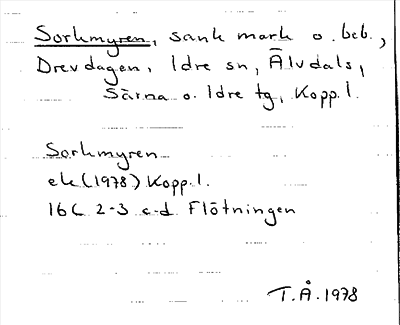 Sorkmyren, sank mark o. beb.,
Drevdagen, Idre sn, Älvdals,
Särna o. Idre tg, Kopp.l.
Sorkmyren
ek (1978) Kopp.l.
16C 2-3 c-d Flötningen
T.Å. 1978